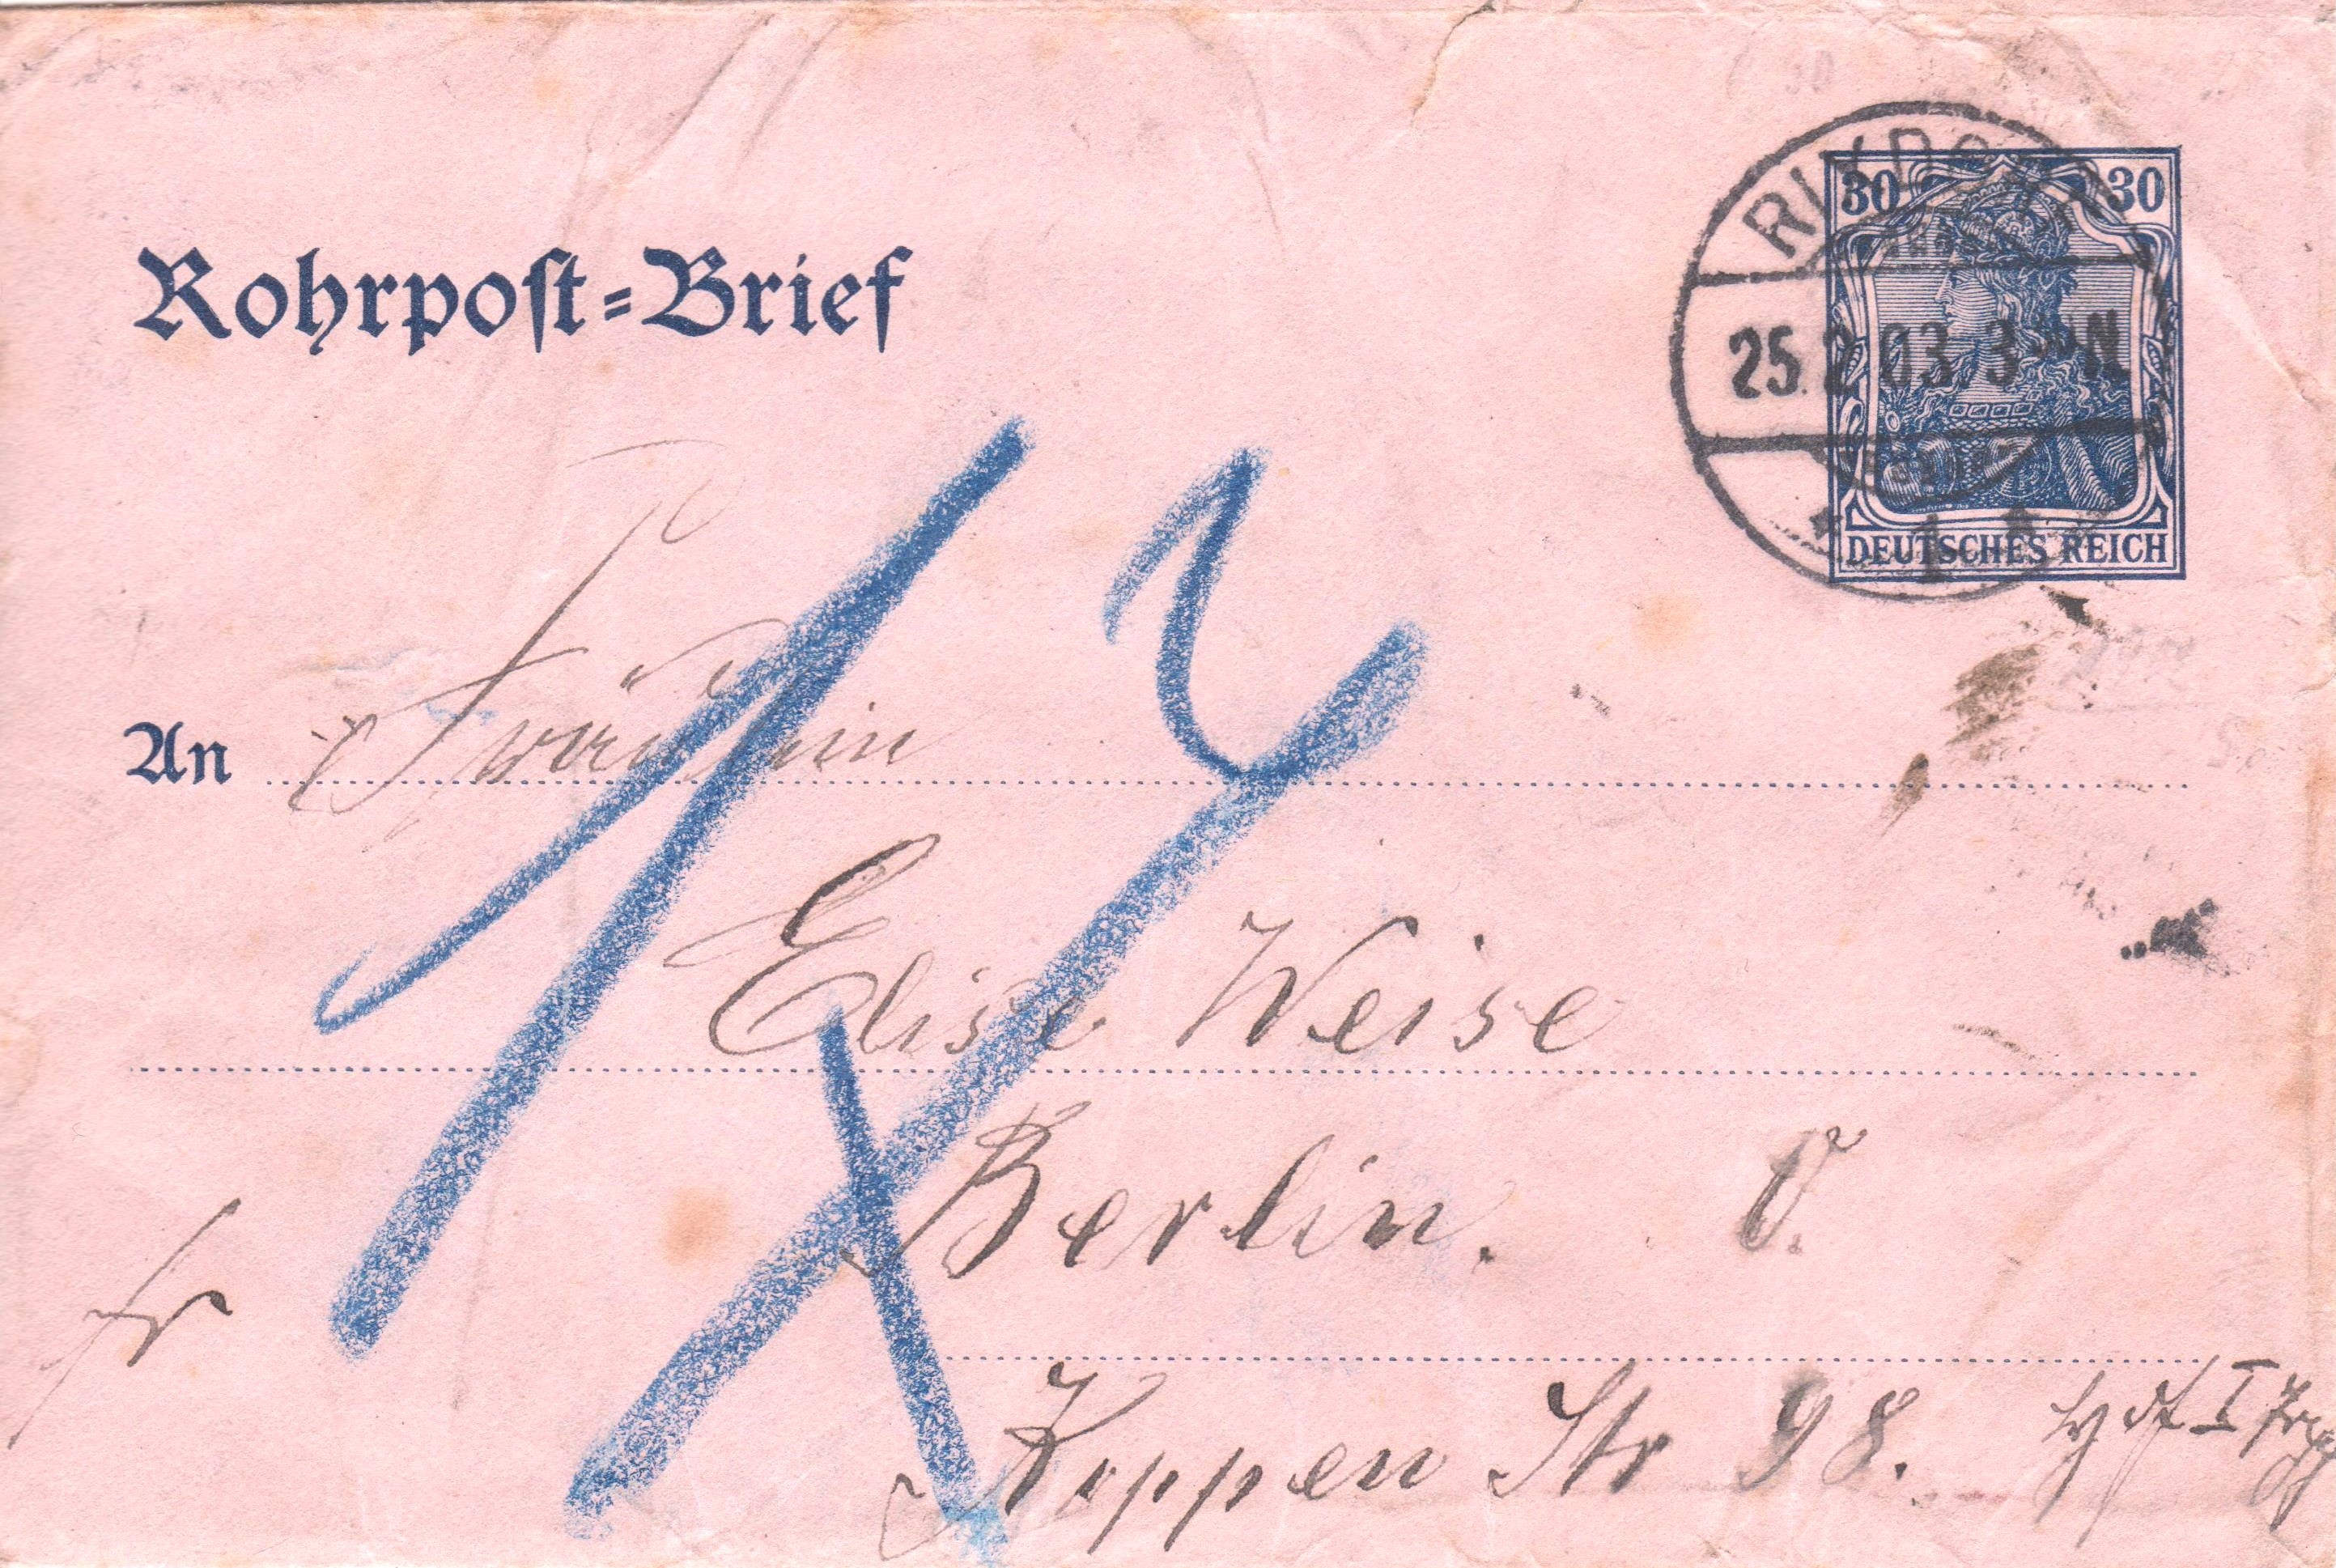 Rohrpost=Brief
RIXDORF
30 30
25.2.03.3-4N
* 1 *
DEUTSCHES REICH
An Fräulein
Elise Weise
Berlin. O.
fr
Koppen Str 98. I